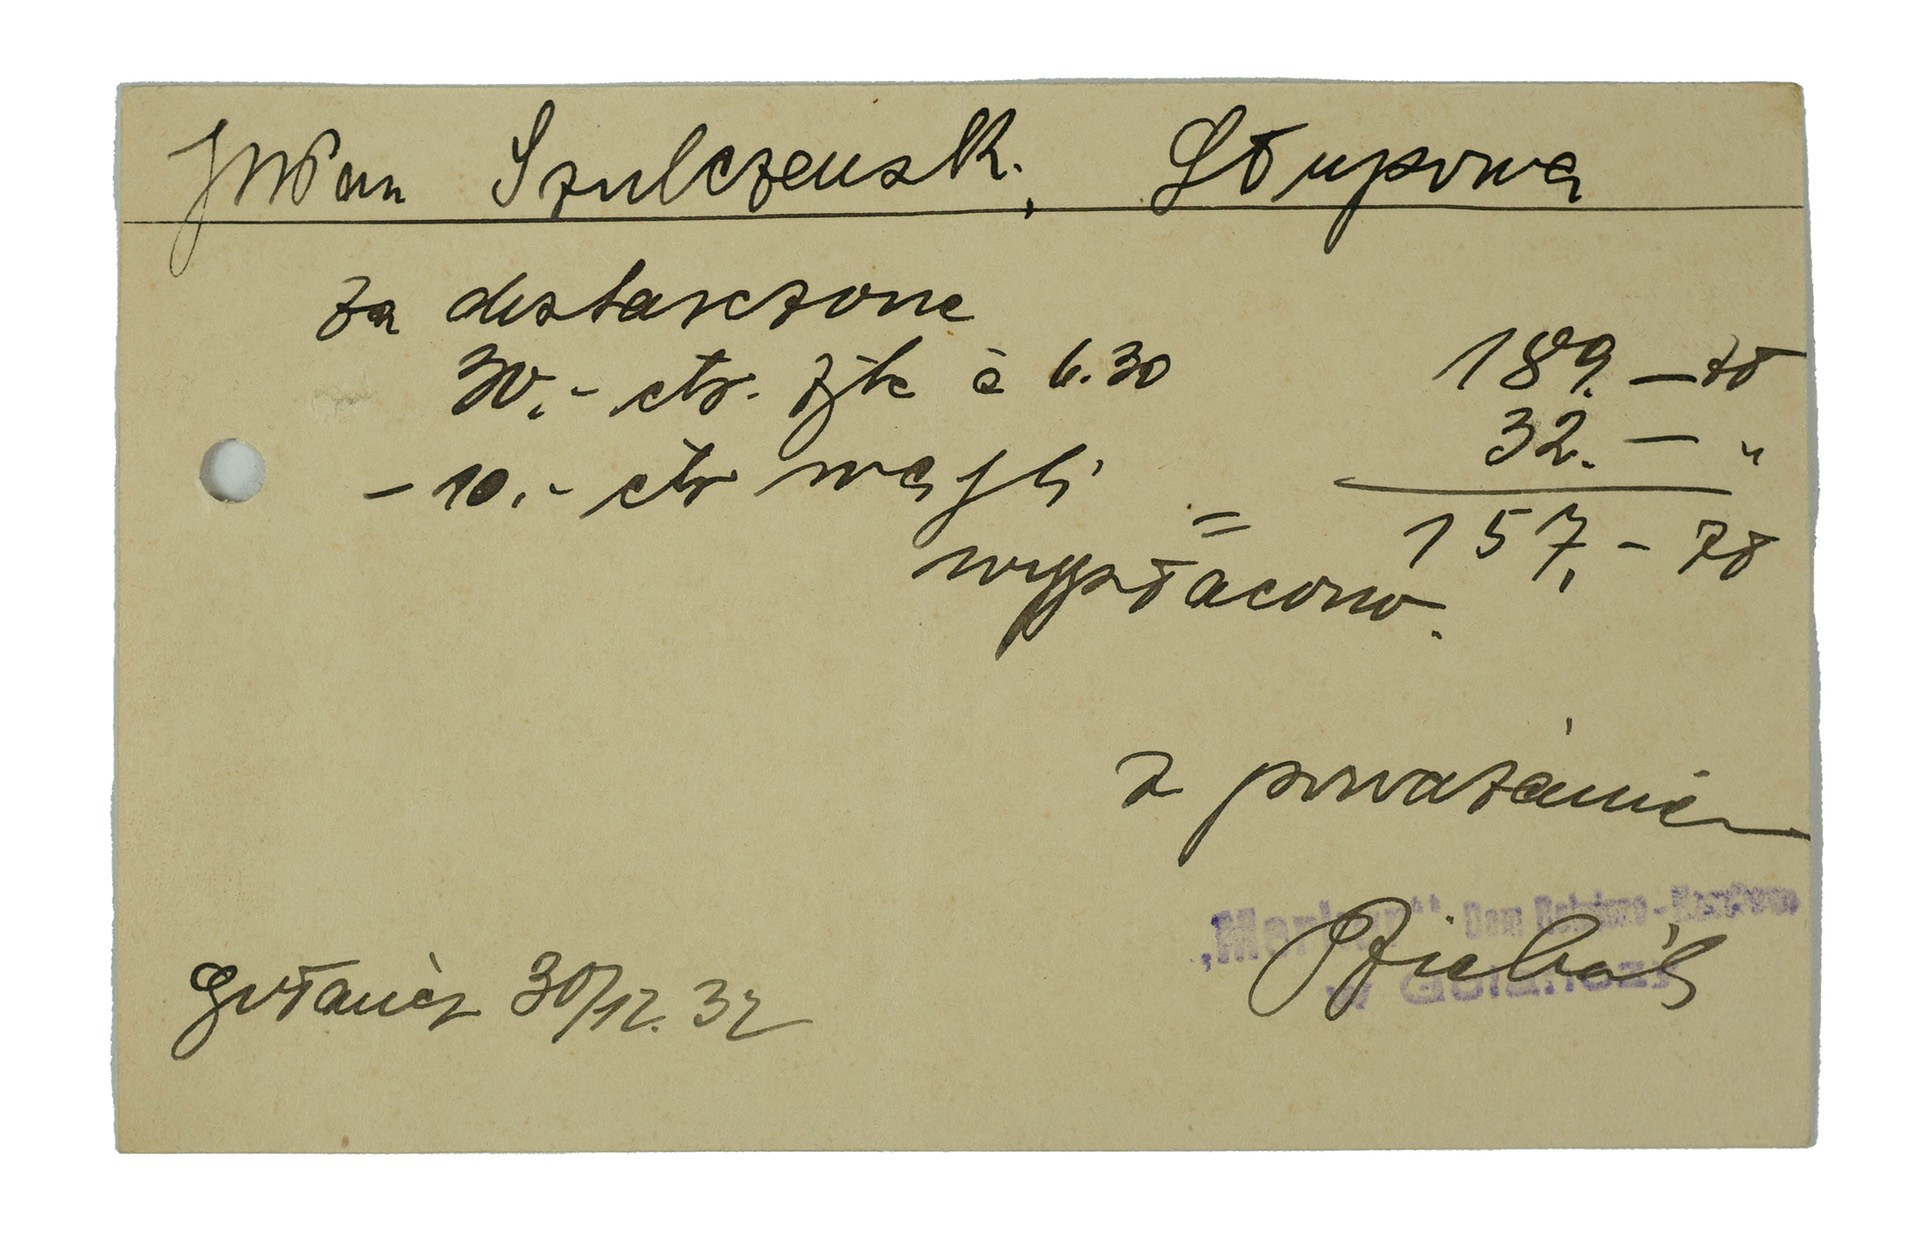 JWPan Szulczewsk. Słupowa
za dostarczone
30.- ctr. żyta à 6.30 189.— zł
- 10.- ctr węgli 32.— "
= 157,- zł
wypłacono.
z poważaniem
„Merkur" Dom Rolniczo-Handlowy
w Gołańczy
Gołańcz 30/12. 32